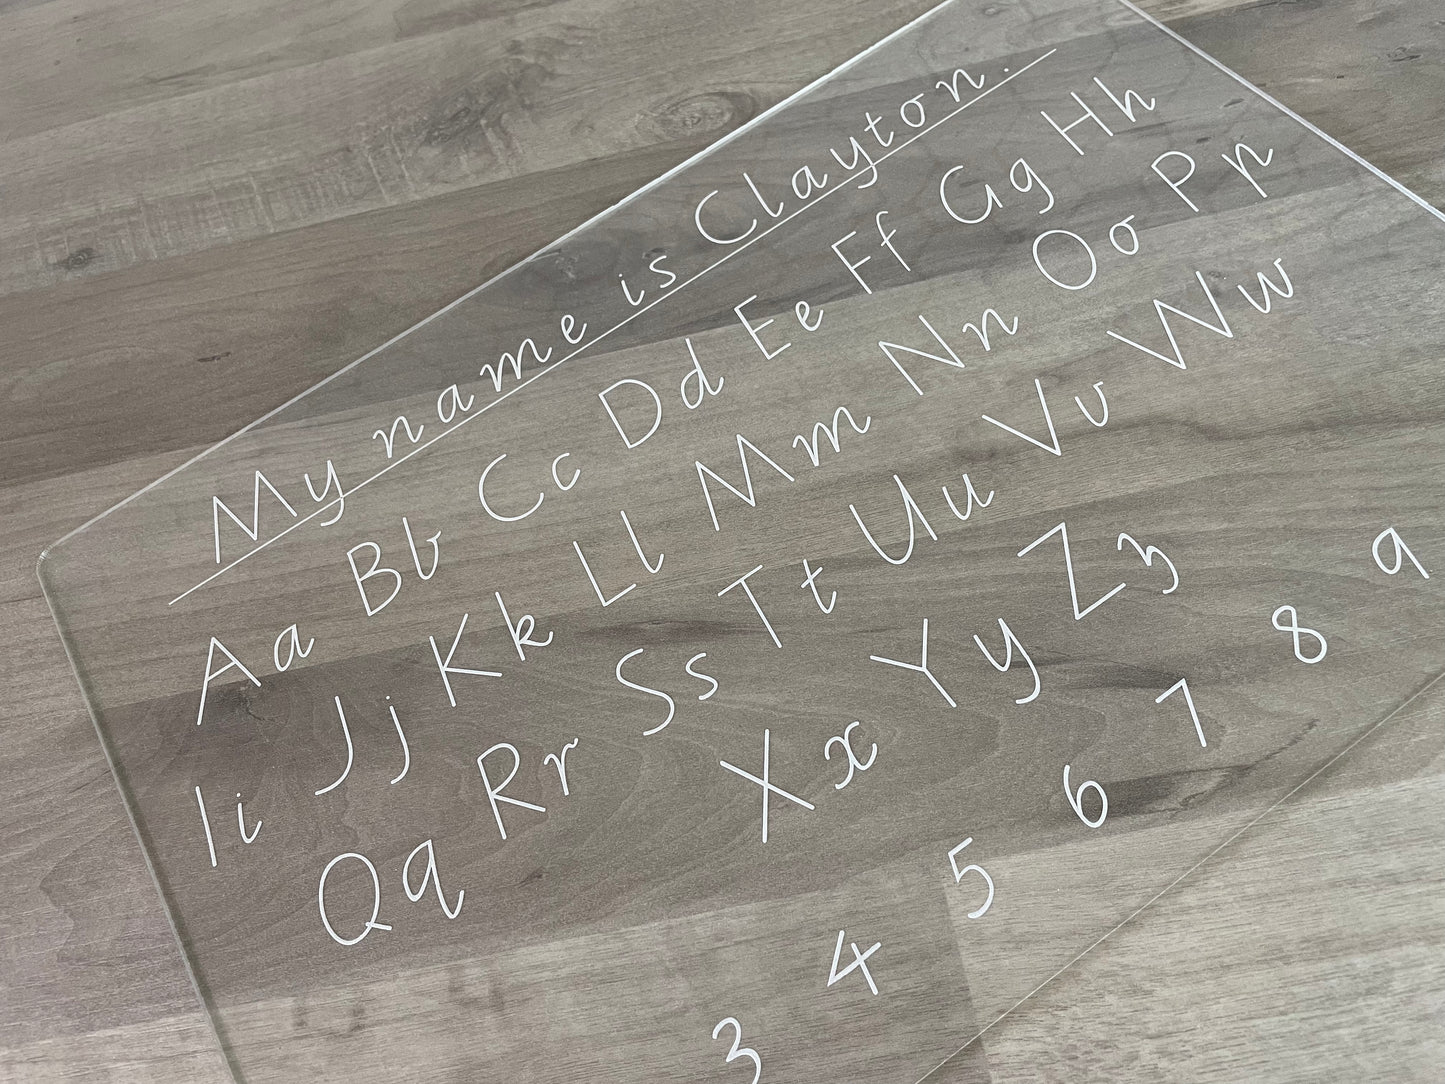 My name is Clayton.
Aa Bb Cc Dd Ee Ff Gg Hh
Ii Jj Kk Ll Mm Nn Oo Pp
Qq Rr Ss Tt Uu Vv Ww
Xx Yy Zz
3 4 5 6 7 8 9